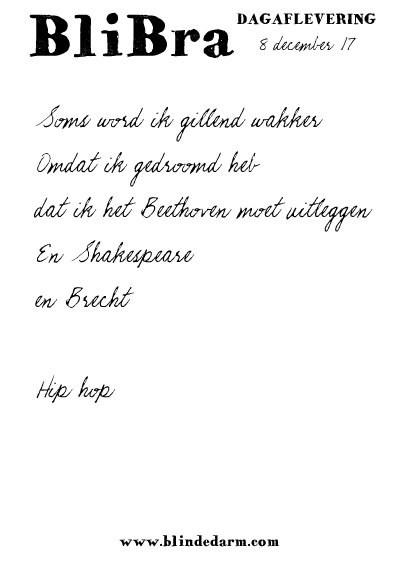 BliBra
DAGAFLEVERING
8 december 17
Soms word ik gillend wakker
Omdat ik gedroomd heb
dat ik het Beethoven moet uitleggen
En Shakespeare
en Brecht
Hip hop
www.blindedarm.com